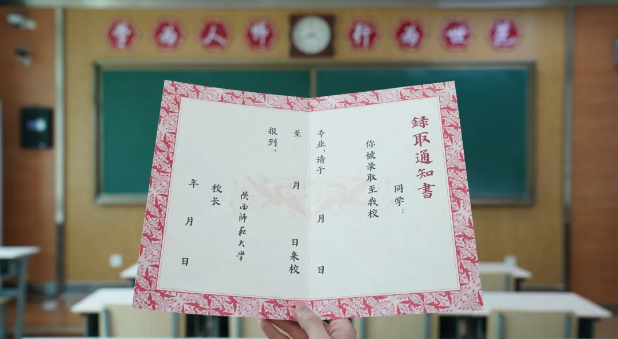 学为人师 行为世范
録取通知書
同学：
你被录取至我校
专业，请于 月 日
至 月 日来校
报到。
陝西師範大學
校长
年 月 日